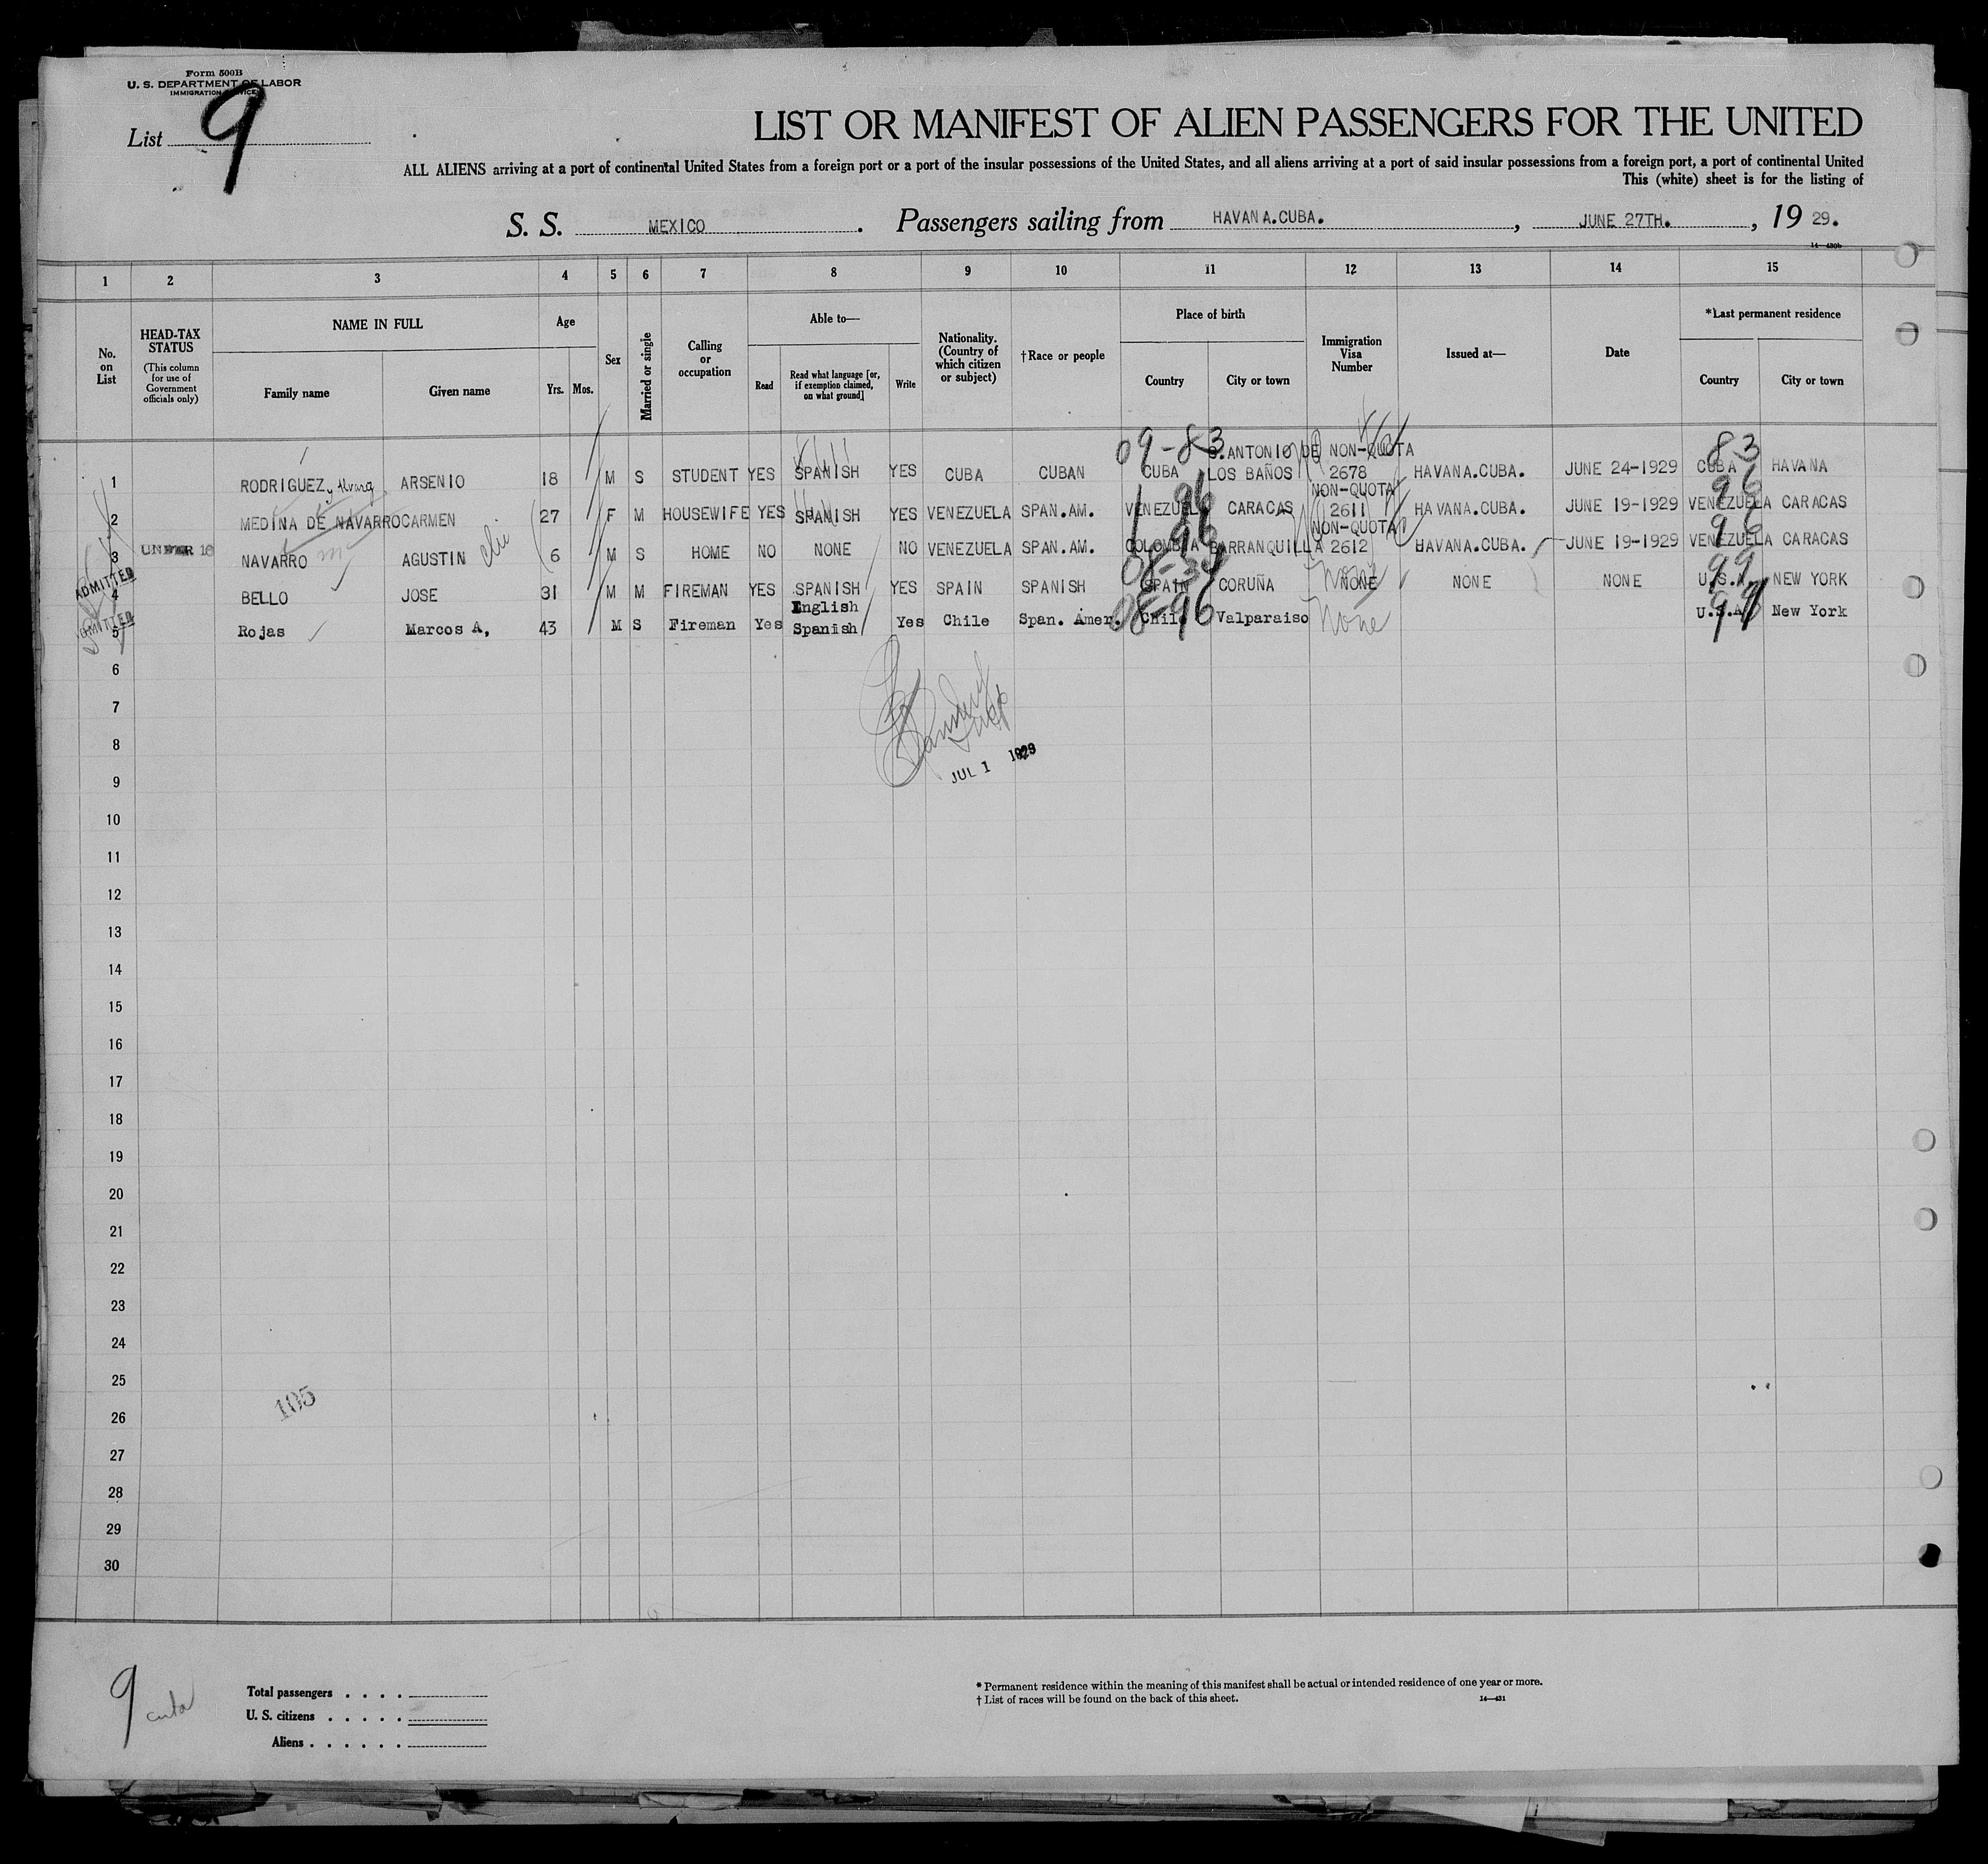 Form 500B
U. S. DEPARTMENT OF LABOR
IMMIGRATION SERVICE
List 9
LIST OR MANIFEST OF ALIEN PASSENGERS FOR THE UNITED
ALL ALIENS arriving at a port of continental United States from a foreign port or a port of the insular possessions of the United States, and all aliens arriving at a port of said insular possessions from a foreign port, a port of continental United
This (white) sheet is for the listing of
S. S. MEXICO. Passengers sailing from HAVANA.CUBA. , JUNE 27TH. , 19 29.
14—430b
1 2 3 4 5 6 7 8 9 10 11 12 13 14 15
No. on List
HEAD-TAX STATUS
(This column for use of Government officials only)
NAME IN FULL
Family name
Given name
Age
Yrs. Mos.
Sex
Married or single
Calling or occupation
Able to—
Read
Read what language [or, if exemption claimed, on what ground]
Write
Nationality. (Country of which citizen or subject)
†Race or people
Place of birth
Country
City or town
Immigration Visa Number
Issued at—
Date
*Last permanent residence
Country
City or town
09-83 S.ANTONIO DE NON-QUOTA 83
1 RODRIGUEZ y ARSENIO 18 M S STUDENT YES SPANISH YES CUBA CUBAN CUBA LOS BAÑOS 2678 HAVANA.CUBA. JUNE 24-1929 CUBA HAVANA
96 NON-QUOTA 96
2 MEDINA DE NAVARRO CARMEN 27 F M HOUSEWIFE YES SPANISH YES VENEZUELA SPAN.AM. VENEZUELA CARACAS 2611 HAVANA.CUBA. JUNE 19-1929 VENEZUELA CARACAS
96 NON-QUOTA 96
3 UNDER 16 NAVARRO m AGUSTIN 6 M S HOME NO NONE NO VENEZUELA SPAN.AM. COLOMBIA BARRANQUILLA 2612 HAVANA.CUBA. JUNE 19-1929 VENEZUELA CARACAS
ADMITTED 99
4 BELLO JOSE 31 M M FIREMAN YES SPANISH YES SPAIN SPANISH SPAIN CORUÑA NONE None NONE NONE U.S.A. NEW YORK
ADMITTED English 08-96 99
5 Rojas Marcos A, 43 M S Fireman Yes Spanish Yes Chile Span. Amer. Chile Valparaiso None U.S.A. New York
6
7
8
JUL 1 1929
9
10
11
12
13
14
15
16
17
18
19
20
21
22
23
24
25
105
26
27
28
29
30
9
Total passengers . . . .
U. S. citizens . . . . .
Aliens . . . . . .
* Permanent residence within the meaning of this manifest shall be actual or intended residence of one year or more.
† List of races will be found on the back of this sheet.
14—431